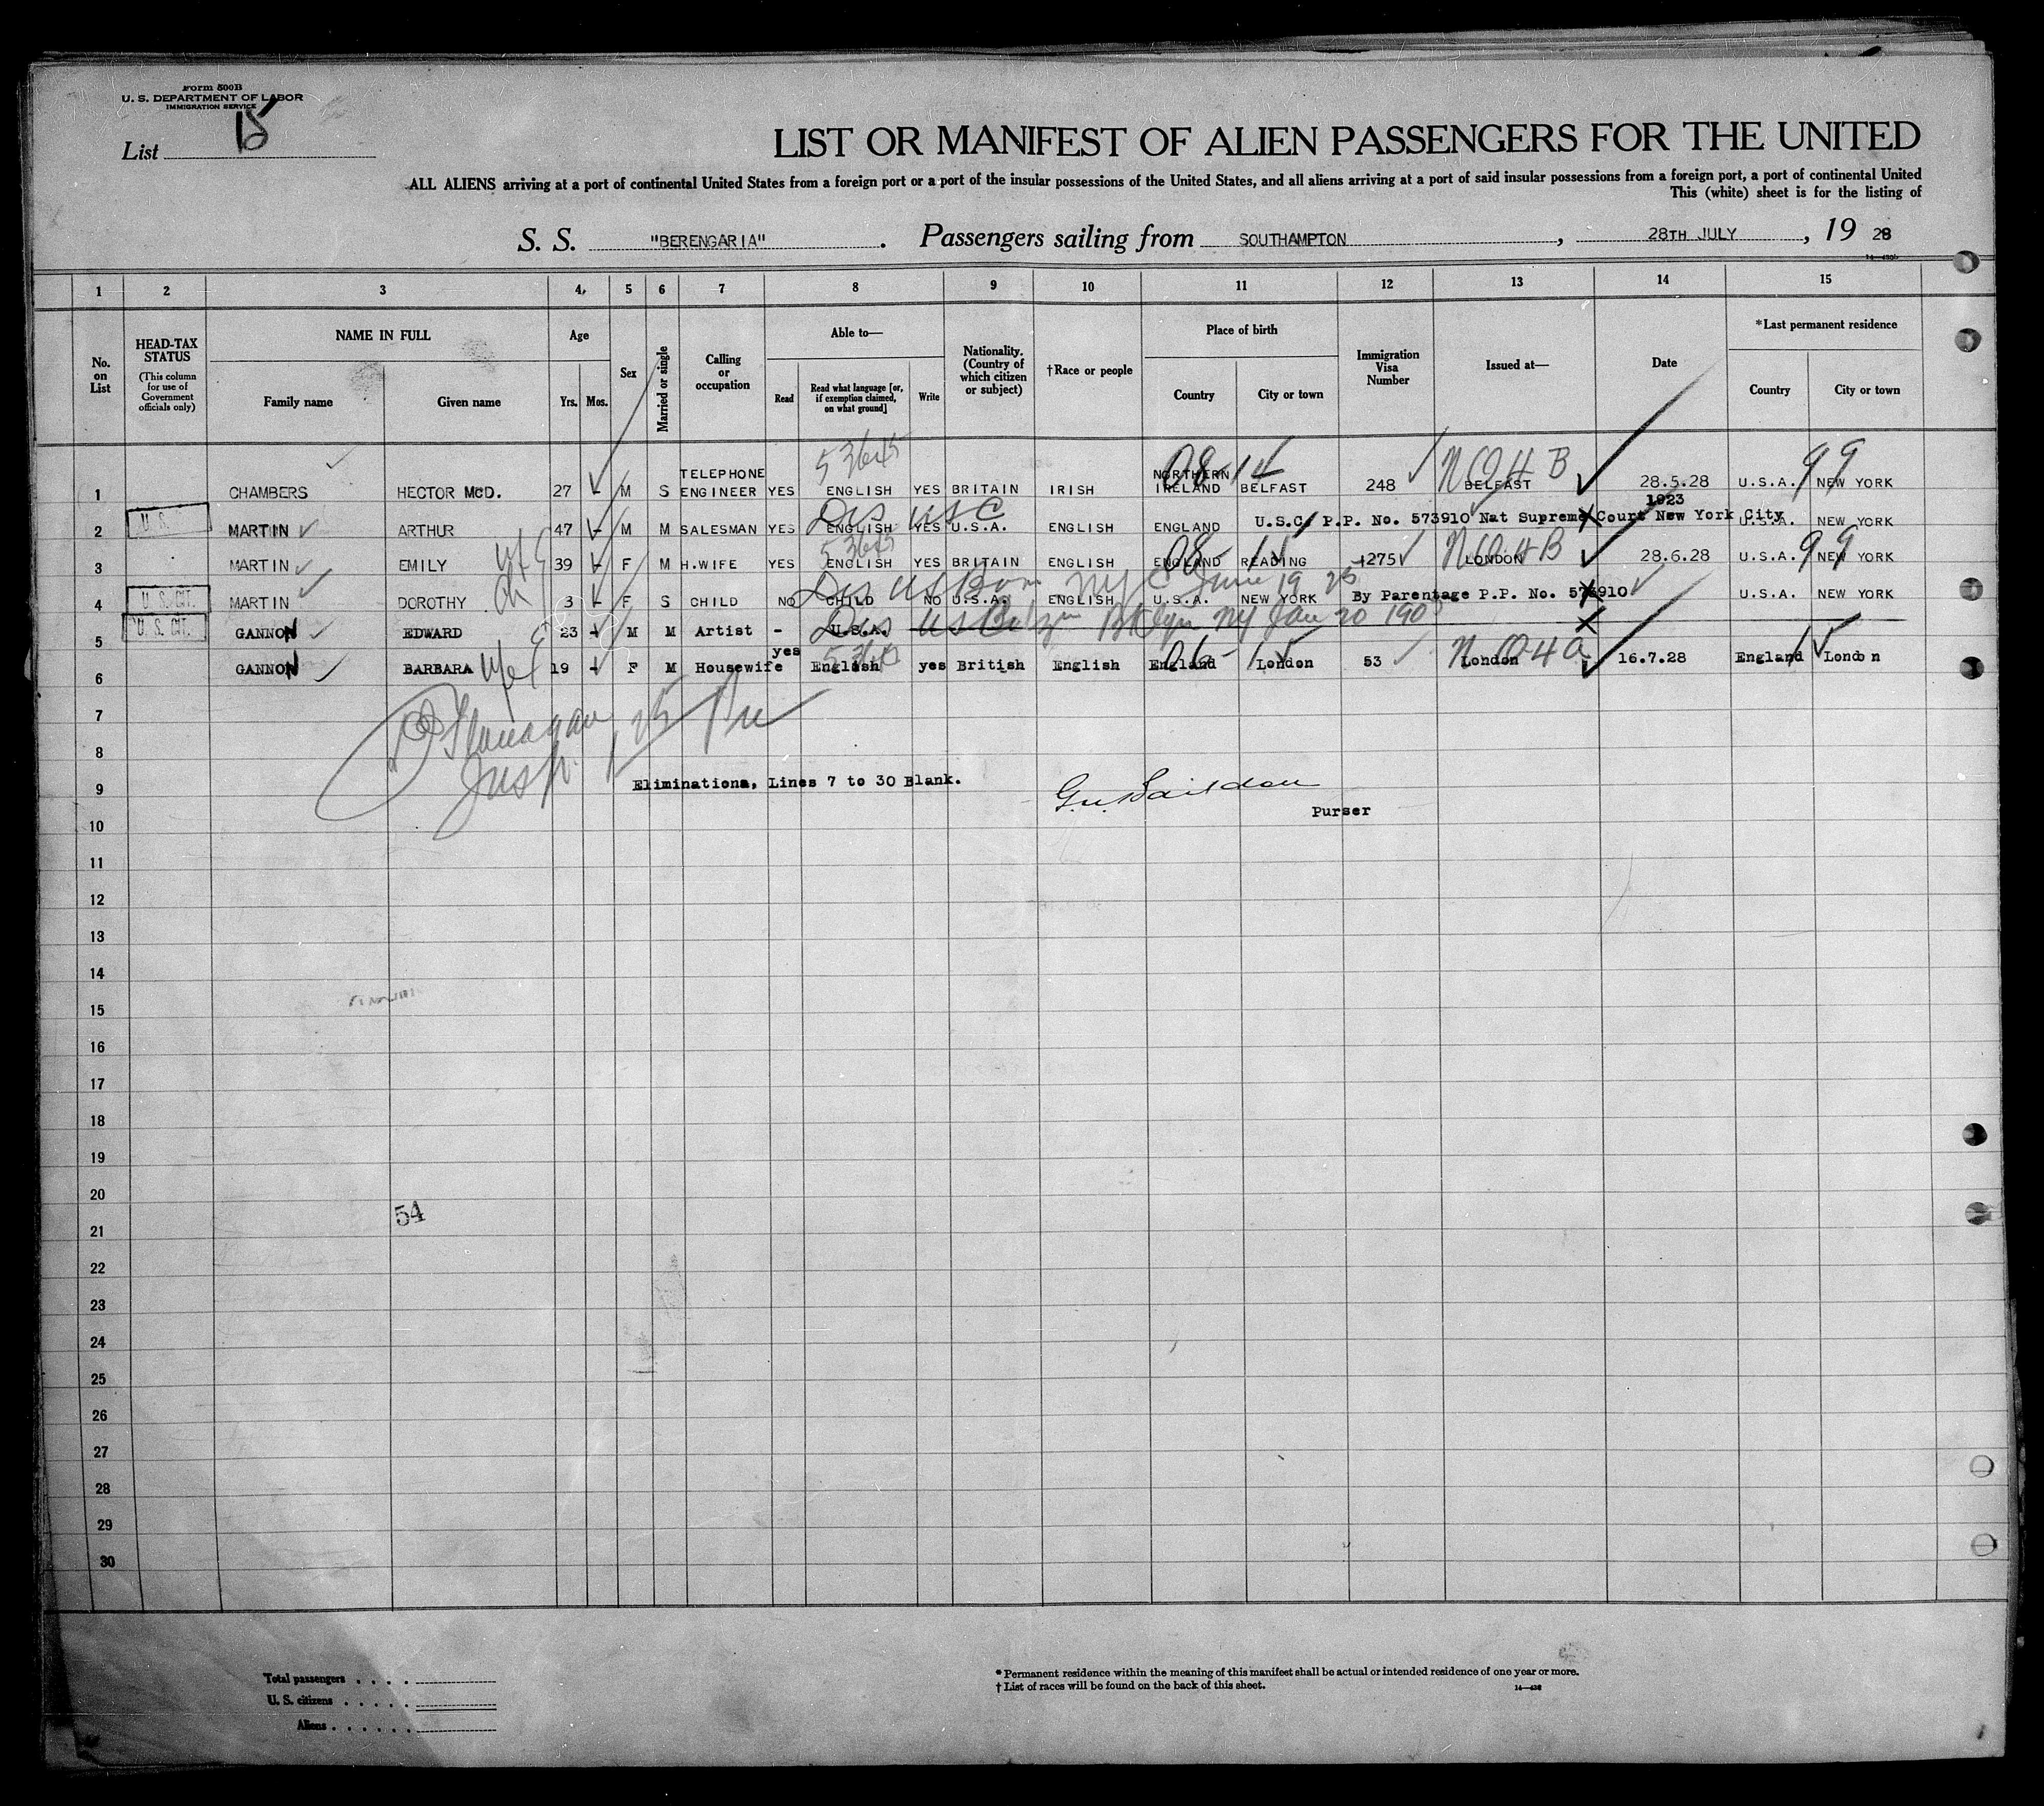 Form 500B
U. S. DEPARTMENT OF LABOR
IMMIGRATION SERVICE
List 15
LIST OR MANIFEST OF ALIEN PASSENGERS FOR THE UNITED
ALL ALIENS arriving at a port of continental United States from a foreign port or a port of the insular possessions of the United States, and all aliens arriving at a port of said insular possessions from a foreign port, a port of continental United
This (white) sheet is for the listing of
S. S. "BERENGARIA". Passengers sailing from SOUTHAMPTON, 28TH JULY, 1928
1 2 3 4 5 6 7 8 9 10 11 12 13 14 15
No. on List
HEAD-TAX STATUS (This column for use of Government officials only)
NAME IN FULL
Family name
Given name
Age
Yrs.
Mos.
Sex
Married or single
Calling or occupation
Able to—
Read
Read what language [or, if exemption claimed, on what ground]
Write
Nationality. (Country of which citizen or subject)
†Race or people
Place of birth
Country
City or town
Immigration Visa Number
Issued at—
Date
*Last permanent residence
Country
City or town
1 CHAMBERS HECTOR McD. 27 - M S TELEPHONE ENGINEER YES ENGLISH YES BRITAIN IRISH NORTHERN IRELAND BELFAST 248 BELFAST 28.5.28 U.S.A. NEW YORK
08-14 NQ4B 99
2 U.S. MARTIN ARTHUR 47 - M M SALESMAN YES ENGLISH YES U.S.A. ENGLISH ENGLAND U.S.C. P.P. No. 573910 Nat Supreme Court New York City 1923 U.S.A. NEW YORK
Dis USC
3 MARTIN EMILY 39 - F M H.WIFE YES ENGLISH YES BRITAIN ENGLISH ENGLAND READING 1275 LONDON 28.6.28 U.S.A. NEW YORK
08- NQ4B 99
4 U. S. CIT. MARTIN DOROTHY 3 - F S CHILD NO CHILD NO U.S.A. ENGLISH U.S.A. NEW YORK By Parentage P.P. No. 573910 U.S.A. NEW YORK
Dis US Born NYC June 19 25
5 U. S. CIT. GANNON EDWARD 23 - M M Artist - U.S.A.
Dis US Citizen Bklyn NY Jan 20 190
6 GANNON BARBARA wife 19 - F M Housewife yes English yes British English England London 53 London 16.7.28 England London
06- NQ4a
7
8
Insp.
9 Eliminations, Lines 7 to 30 Blank.
Purser
10
11
12
13
14
15
16
17
18
19
20
54
21
22
23
24
25
26
27
28
29
30
Total passengers
U. S. citizens
Aliens
* Permanent residence within the meaning of this manifest shall be actual or intended residence of one year or more.
† List of races will be found on the back of this sheet.